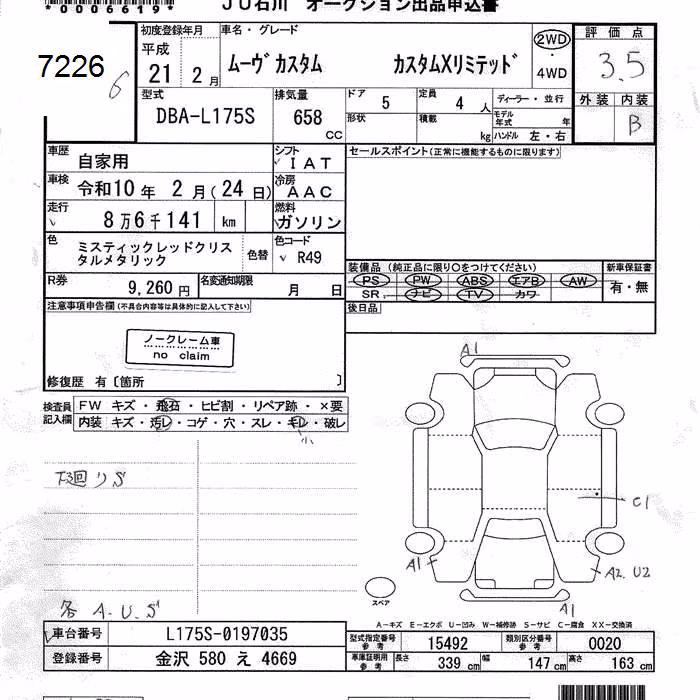 *0006619*
JU石川 オークション出品申込書
7226
6
初度登録年月
平成
21 2月
車名・グレード
ムーヴカスタム カスタムXリミテッド
2WD
・
4WD
評価点
3.5
外装 内装
B
型式
DBA-L175S
排気量
658
CC
ドア
5
定員
4 人
形状
積載
kg
ディーラー・並行
モデル年式 年
ハンドル 左・右
車歴
自家用
シフト
IAT
車検
令和10年 2月(24日)
冷房
AAC
走行
8万6千141 km
燃料
ガソリン
色
ミスティックレッドクリス
タルメタリック
色替
色コード
R49
R券
9,260円
名変通知期限
月 日
セールスポイント(正常に機能するものに限ります)
装備品 (純正品に限り○をつけてください)
PS PW ABS エアB AW
SR ナビ TV カワ
新車保証書
有・無
後日品
注意事項申告欄(不具合内容等は具体的に記入して下さい)
ノークレーム車
no claim
修復歴 有〔箇所 〕
検査員
記入欄
FW キズ・飛石・ヒビ割・リペア跡・×要
内装 キズ・汚レ・コゲ・穴・スレ・キレ・破レ
下回りS
各 A.U.S
A1
C1
A1
A2.U2
A1
スペア
A-キズ E-エクボ U-凹み W-補修跡 S-サビ C-腐食 XX-交換済
車台番号
L175S-0197035
登録番号
金沢 580 え 4669
型式指定番号
参考
15492
類別区分番号
参考
0020
車庫証明用
参考
長さ 339 cm 幅 147 cm 高さ 163 cm